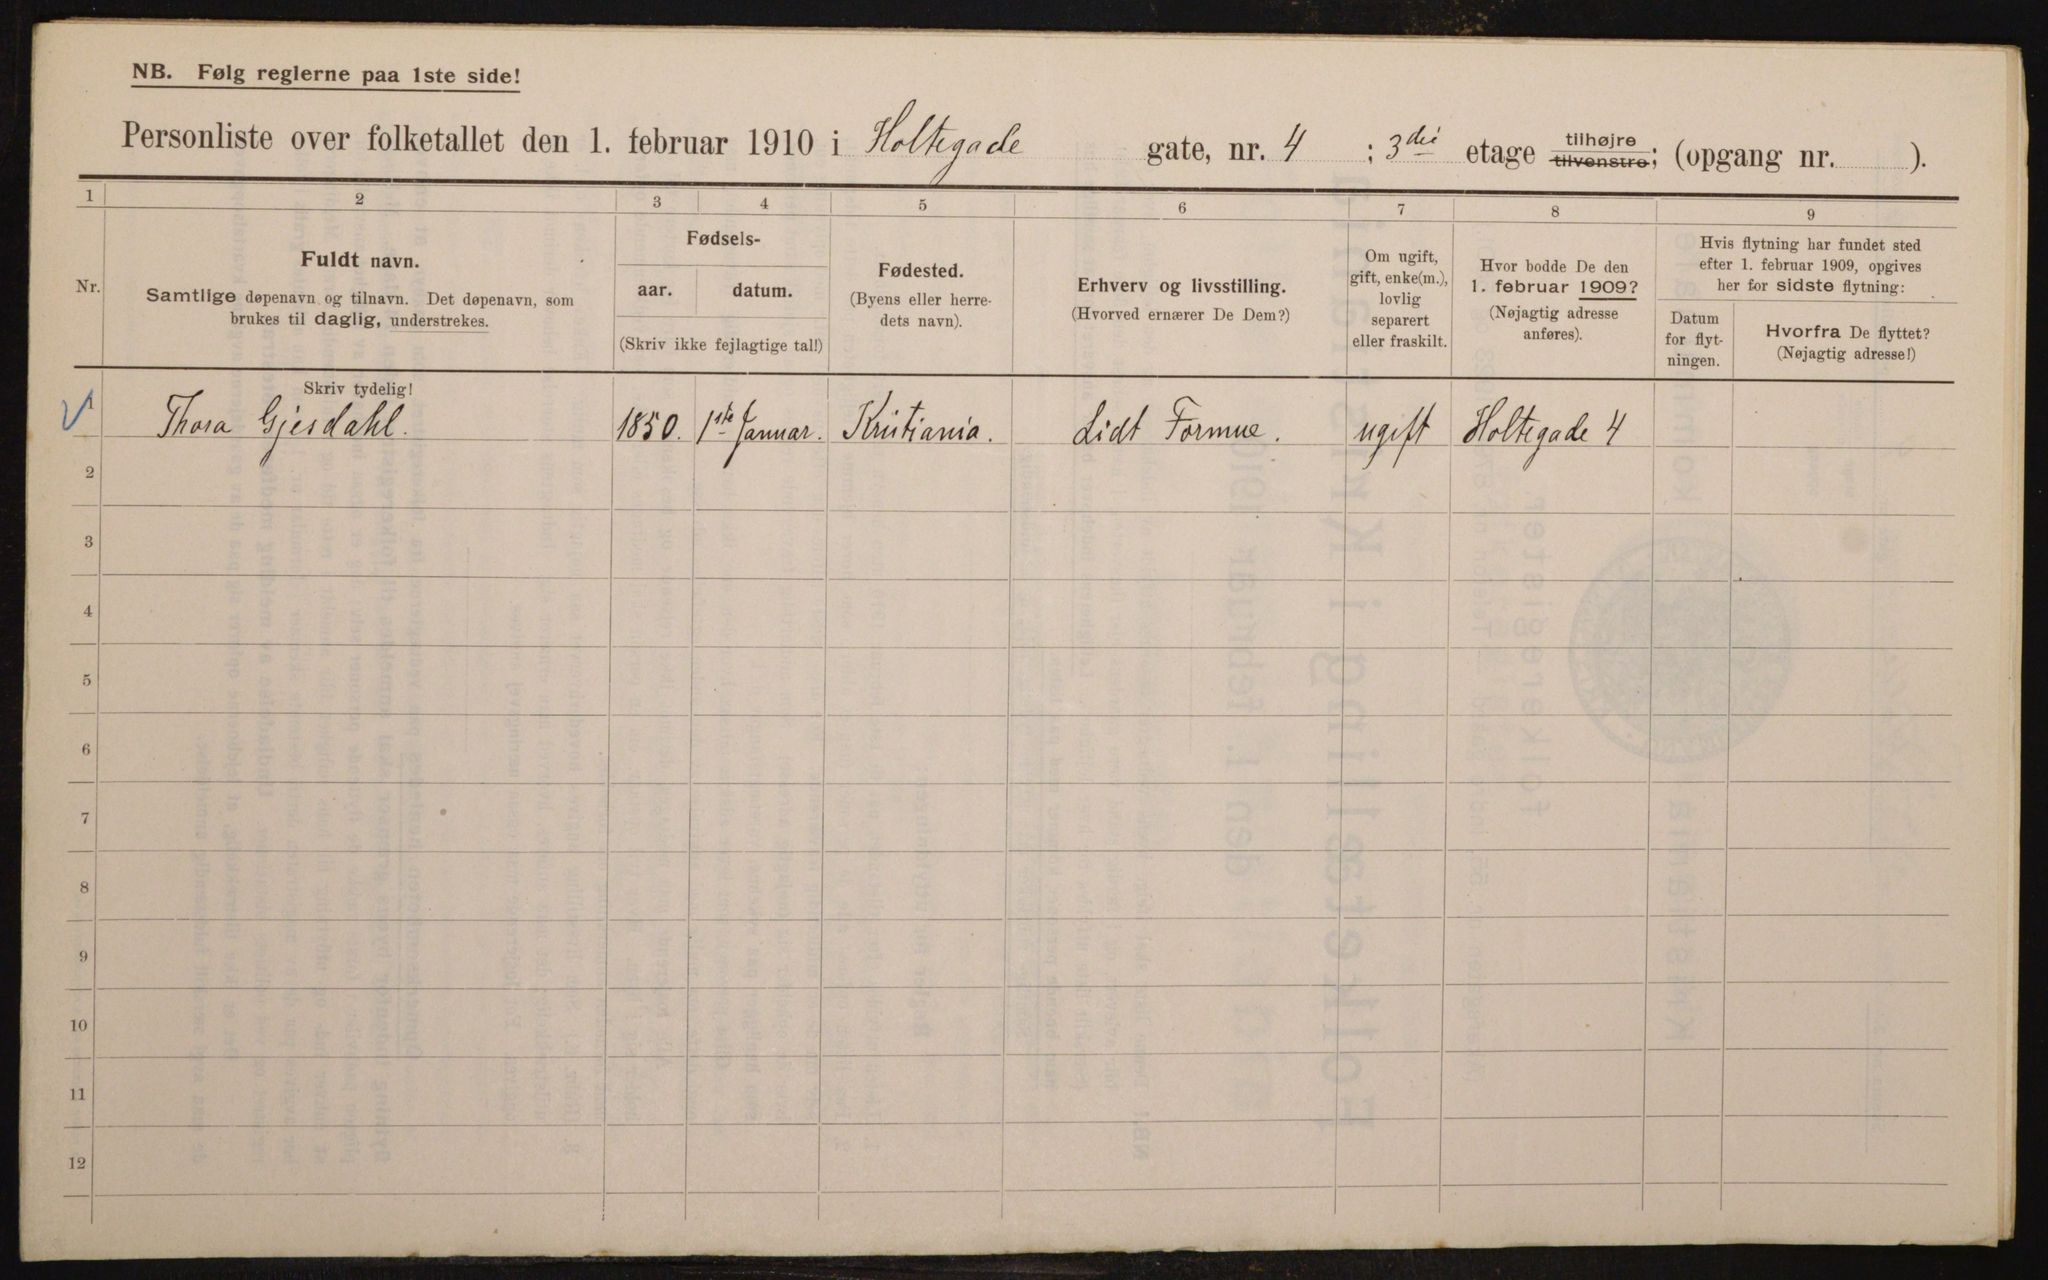 NB. Følg reglerne paa 1ste side!
Personliste over folketallet den 1. februar 1910 i Holtegade gate, nr. 4 ; 3die etage tilhøjre tilvenstre; (opgang nr. ).
1 2 3 4 5 6 7 8 9
Nr.
Fuldt navn.
Samtlige døpenavn og tilnavn. Det døpenavn, som
brukes til daglig, understrekes.
Fødsels-
aar. datum.
(Skriv ikke fejlagtige tal!)
Fødested.
(Byens eller herre-
dets navn).
Erhverv og livsstilling.
(Hvorved ernærer De Dem?)
Om ugift,
gift, enke(m.),
lovlig
separert
eller fraskilt.
Hvor bodde De den
1. februar 1909?
(Nøjagtig adresse
anføres).
Hvis flytning har fundet sted
efter 1. februar 1909, opgives
her for sidste flytning:
Datum
for flyt-
ningen.
Hvorfra De flyttet?
(Nøjagtig adresse!)
Skriv tydelig!
1 Thora Gjesdahl. 1850. 1ste Januar. Kristiania. Lidt Formue. ugift Holtegade 4
2
3
4
5
6
7
8
9
10
11
12